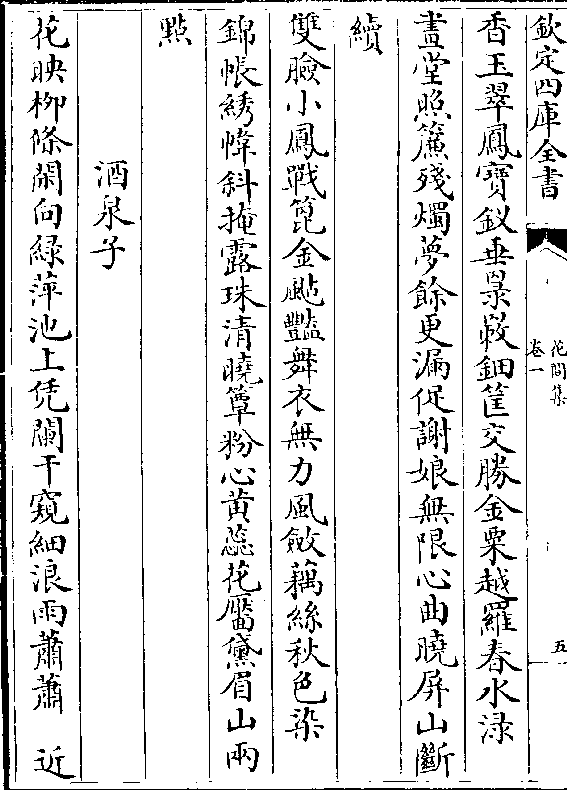 欽定四庫全書
花間集
卷一
五
香玉翠鳳寶釵垂鈿筐交勝金粟越羅春水渌
畫堂照簾殘燭夢餘更漏促謝娘無限心曲曉屏山斷
續
雙臉小鳳戰篦金颭豔舞衣無力風斂藕絲秋色染
錦帳綉幃斜掩露珠清曉簟粉心黄蕊花靨黛眉山兩
點
酒泉子
花映柳條閑向緑萍池上凭闌干窺細浪雨蕭蕭　近